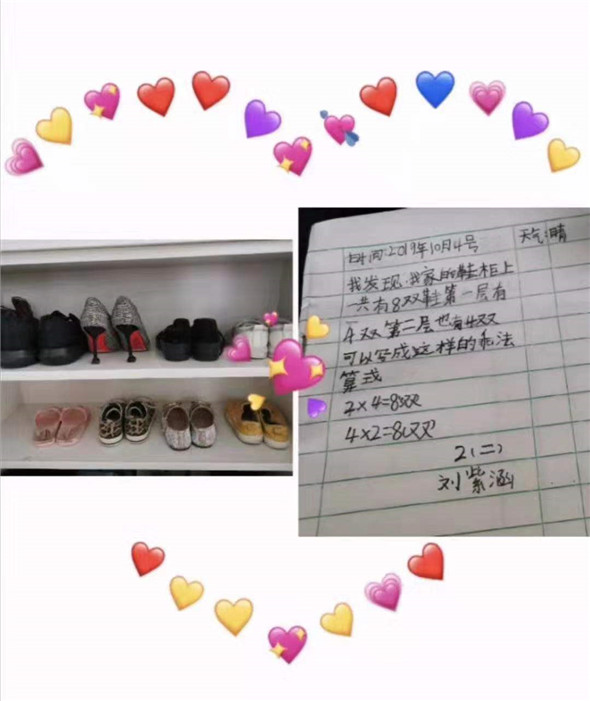 时间:2019年10月4号 天气:晴
我发现,我家的鞋柜上
一共有8双鞋第一层有
4双第二层也有4双
可以写成这样的乖法
算式
2×4=8双
4×2=8双
2(二)
刘紫涵